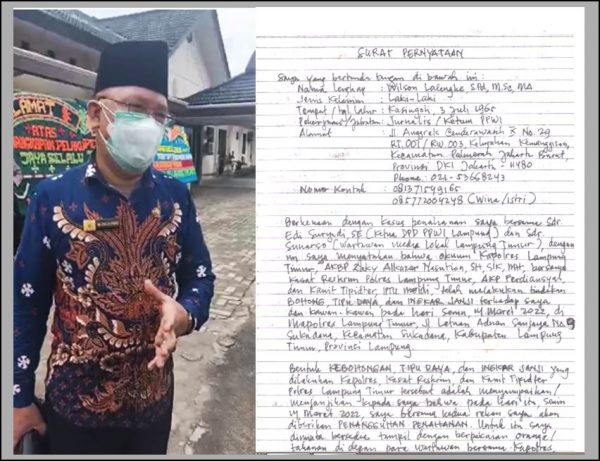 LAMAT &
ATAS
JAYA SELALU
SURAT PERNYATAAN
Saya yang bertanda tangan di bawah ini :
Nama Lengkap : Wilson Lalengke, S.Pd, M.Sc, MA
Jenis Kelamin : Laki-Laki
Tempat/tgl Lahir : Kasingoh 3 Juli 1965
Pekerjaan/Jabatan : Jurnalis / Ketum PPWI
Alamat : Jl. Anggrek Cenderawasih 3 No. 29
RT.001/RW.003, Kelurahan Kemanggisan,
Kecamatan Palmerah Jakarta Barat,
Provinsi DKI Jakarta - 11480
Phone : 021-53668243
Nomor Kontak : 081371549165
085772004248 (Wina/Istri)
Berkenaan dengan kasus penahanan saya bersama Sdr.
Edi Suryadi SE (Ketua DPD PPWI Lampung) dan Sdr.
Sunarso (Wartawan Media Lokal Lampung Timur), dengan
ini saya menyatakan bahwa oknum Kapolres Lampung
Timur, AKBP Zaky Alkazar Nasution, SH, SIK, MH, bersama
Kasat Reskrim Polres Lampung Timur, AKP Ferdiansyah,
dan Kanit Tipidter, IPTU telah melakukan tindakan
BOHONG, TIPU DAYA, dan INGKAR JANJI terhadap saya
dan kawan-kawan pada hari Senin, 14 Maret 2022, di
Mapolres Lampung Timur, Jl Letnan Adnan Sanjaya No. 9
Sukadana, Kecamatan Sukadana, Kabupaten Lampung
Timur, Provinsi Lampung.
Bentuk KEBOHONGAN, TIPU DAYA, dan INGKAR JANJI yang
dilakukan Kapolres, Kasat Reskrim dan Kanit Tipidter
Polres Lampung Timur tersebut adalah menyampaikan/
menjanjikan kepada saya bahwa pada hari itu, Senin
14 Maret 2022 saya bersama kedua rekan saya akan
diberikan PENANGGUHAN PENAHANAN. Untuk itu saya
diminta bersedia tampil dengan berpakaian orange/
tahanan di depan para wartawan bersama Kapolres